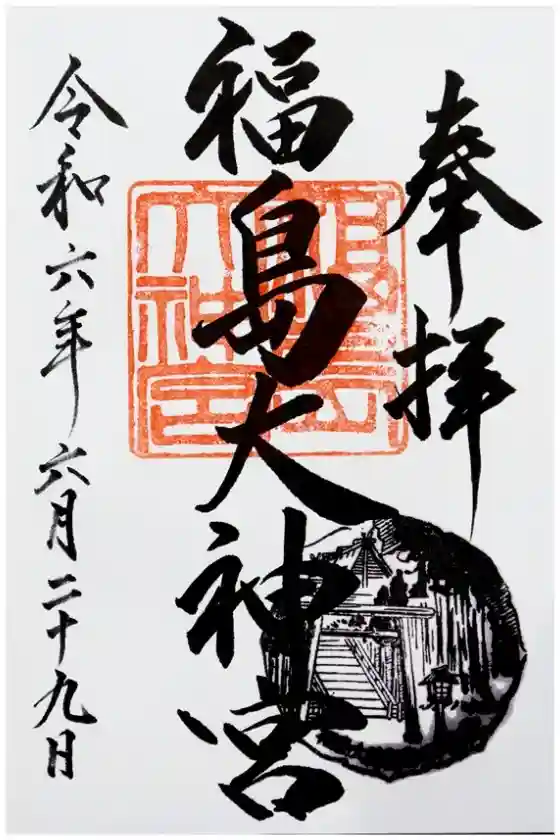 奉拝
福島大神宮
令和六年六月二十九日